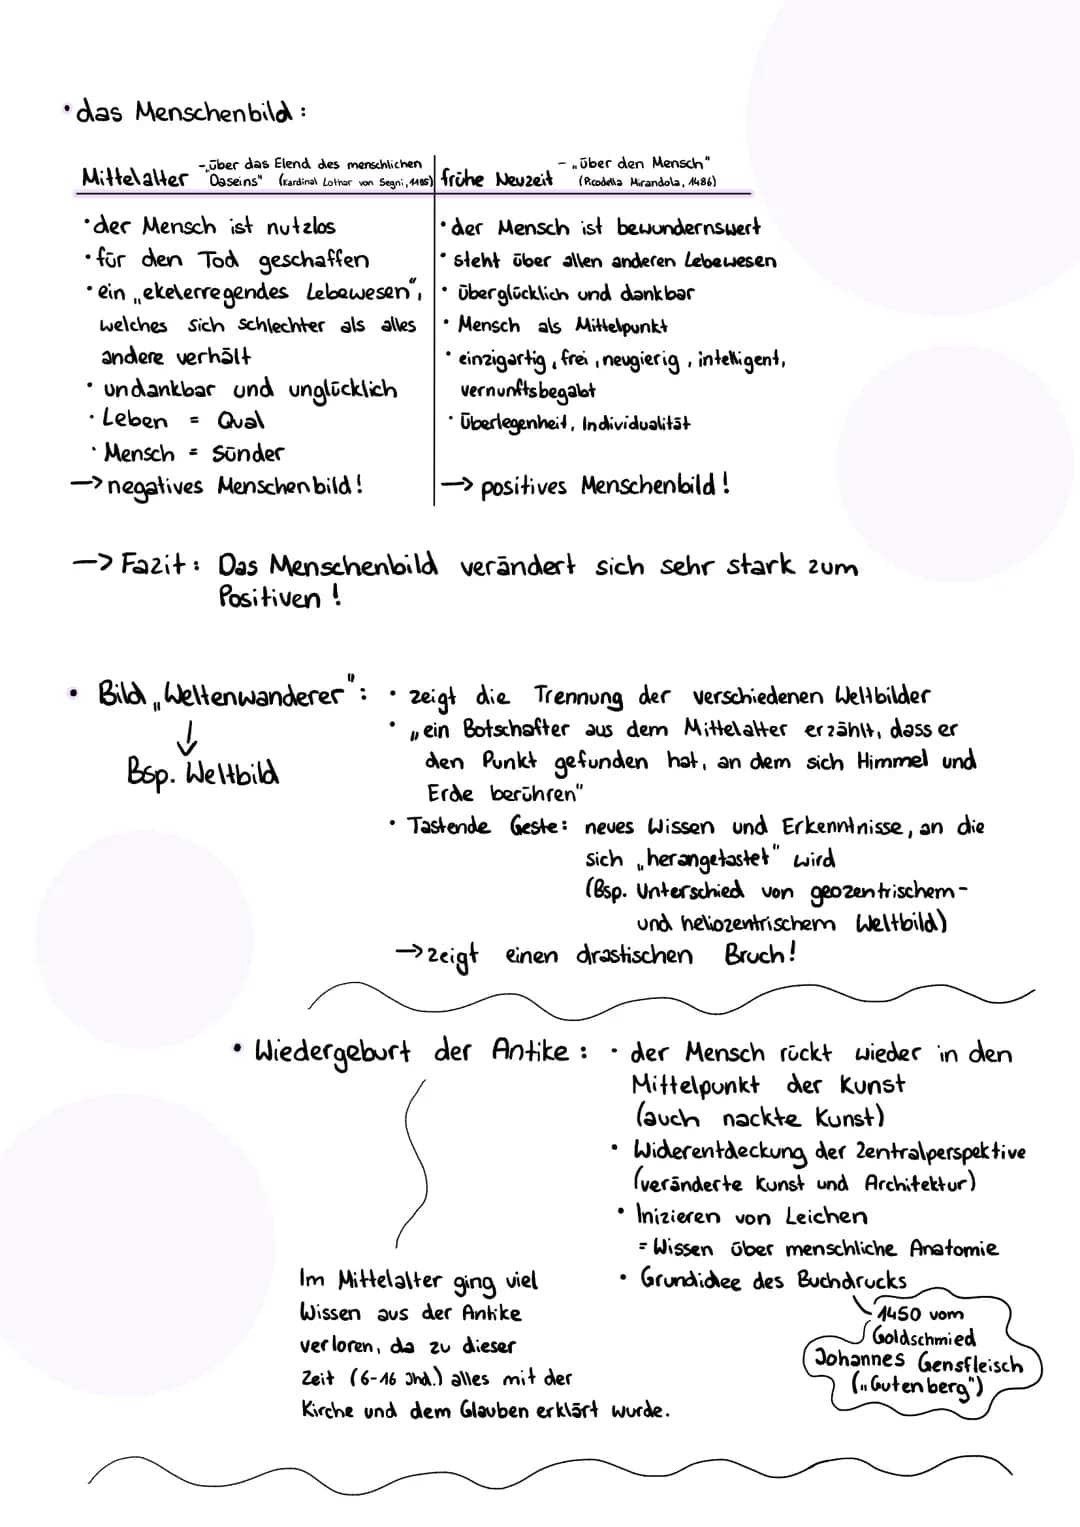 • das Menschenbild :
- „über das Elend des menschlichen
Mittelalter Daseins" (Kardinal Lothar von Segni, 1185)
• der Mensch ist nutzlos
• für den Tod geschaffen
• ein „ekelerregendes Lebewesen",
welches sich schlechter als alles
andere verhält
• undankbar und unglücklich
• Leben = Qual
• Mensch = Sünder
→ negatives Menschenbild!
- „über den Mensch"
frühe Neuzeit (Pico della Mirandola, 1486)
• der Mensch ist bewundernswert
• steht über allen anderen Lebewesen
• überglücklich und dankbar
• Mensch als Mittelpunkt
• einzigartig, frei, neugierig, intelligent,
vernunftsbegabt
• Überlegenheit, Individualität
→ positives Menschenbild!
→ Fazit: Das Menschenbild verändert sich sehr stark zum
Positiven!
• Bild „Weltenwanderer":
↓
Bsp. Weltbild
• zeigt die Trennung der verschiedenen Weltbilder
• „ein Botschafter aus dem Mittelalter erzählt, dass er
den Punkt gefunden hat, an dem sich Himmel und
Erde berühren"
• Tastende Geste: neues Wissen und Erkenntnisse, an die
sich „herangetastet" wird
(Bsp. Unterschied von geozentrischem-
und heliozentrischem Weltbild)
→ zeigt einen drastischen Bruch!
• Wiedergeburt der Antike :
• der Mensch rückt wieder in den
Mittelpunkt der Kunst
(auch nackte Kunst)
• Widerentdeckung der Zentralperspektive
(veränderte Kunst und Architektur)
• Inizieren von Leichen
= Wissen über menschliche Anatomie
• Grundidee des Buchdrucks
1450 vom
Goldschmied
Johannes Gensfleisch
(„Gutenberg")
Im Mittelalter ging viel
Wissen aus der Antike
verloren, da zu dieser
Zeit (6-16 Jhd.) alles mit der
Kirche und dem Glauben erklärt wurde.